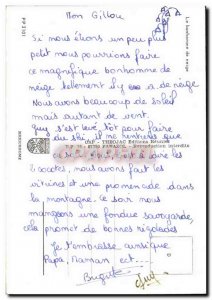 Mon Gillou
Si nous étions un peu plus
petit nous pourrions faire
ce magnifique bonhomme
de neige tellement il y a de neige
Nous avons beaucoup de soleil
mais autant de vent.
Guy s'est levé tôt pour faire
du ski, il ne rentre que
ce soir,
cocottes, nous avons fait les
vitrines et une promenade dans
la montagne. Ce soir nous
mangeons une fondue savoyarde,
cela promet de bonnes rigolades
Je t'embrasse ainsi que
Papa, Maman et...
Brigitte
Guy
Le bonhomme de neige
Editions
Reproduction interdite